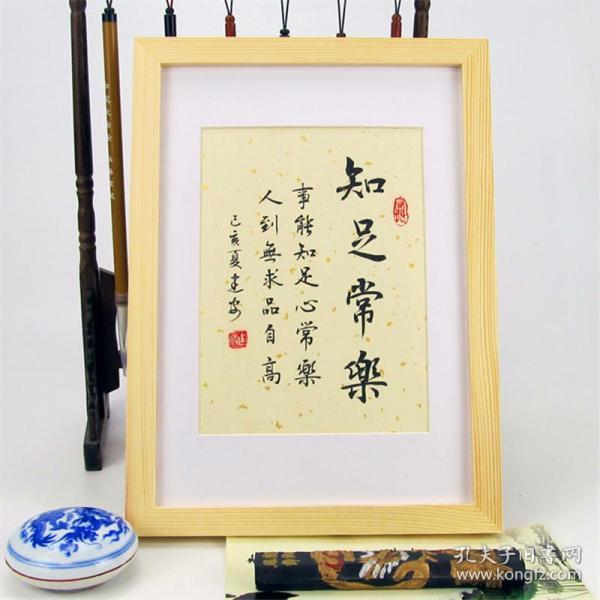 知足常樂
事能知足心常樂
人到無求品自高
己亥夏建安
孔夫子旧书网
www.kongfz.com